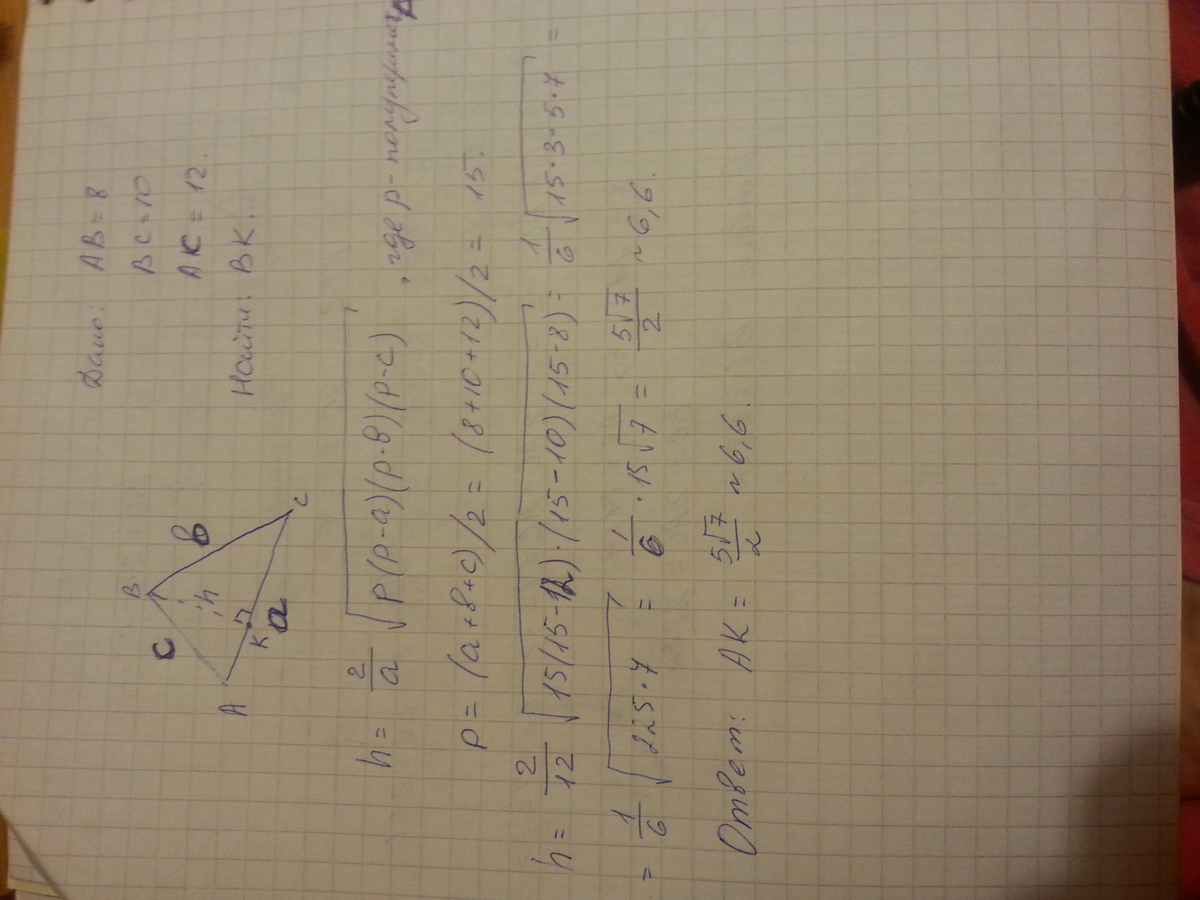 Дано: AB = 8
BC = 10
AC = 12.
Найти: BK.
B
c
b
h
A
K
a
C
h = 2/a √p(p-a)(p-в)(p-c) , где p - полупериметр
p = (a+в+c)/2 = (8+10+12)/2 = 15.
h = 2/12 √15(15-12)·(15-10)(15-8) = 1/6 √15·3·5·7 =
= 1/6 √225·7 = 1/6 · 15√7 = 5√7/2 ~ 6,6.
Ответ: AK = 5√7/2 ~ 6,6.